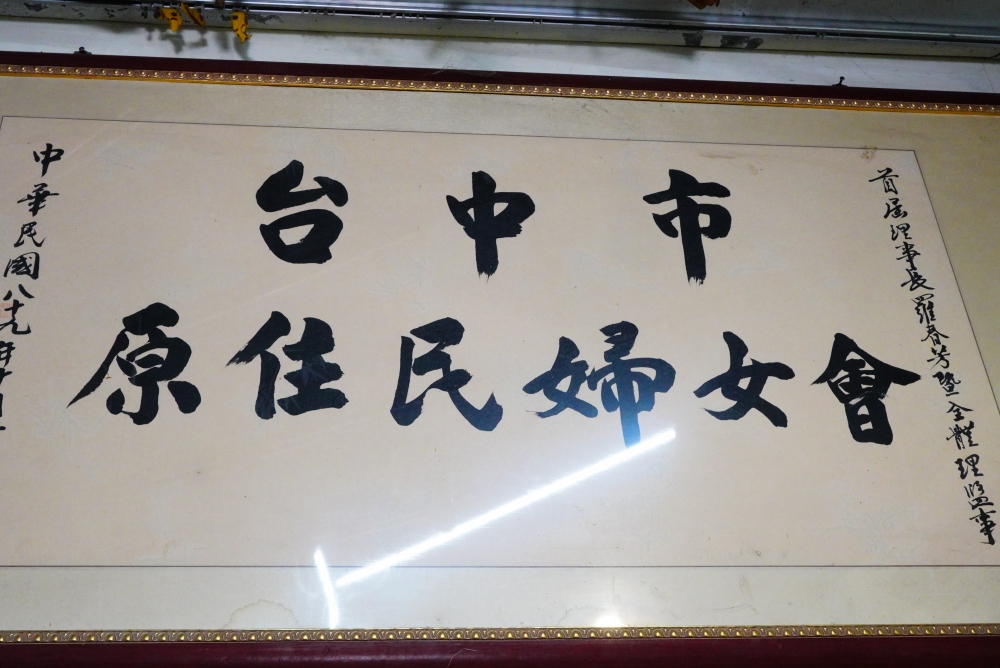 台中市
原住民婦女會
首屆理事長羅春芳暨全體理監事
中華民國八十九年十